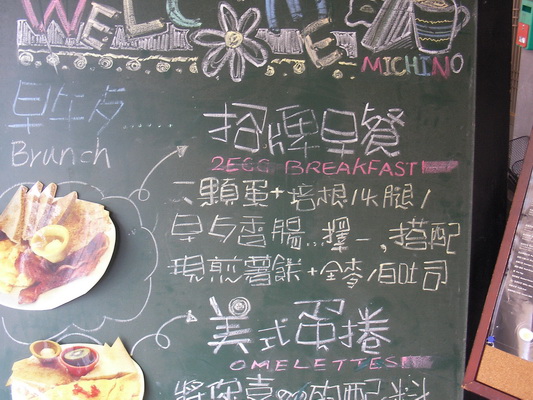 WELCOME
MICHINO
早午歺......
Brunch
招牌早餐
2EGG BREAKFAST
二顆蛋+培根/火腿/
早歺香腸..擇一,搭配
現煎薯餅+全麥/白吐司
美式蛋捲
OMELETTES
將你喜的配料